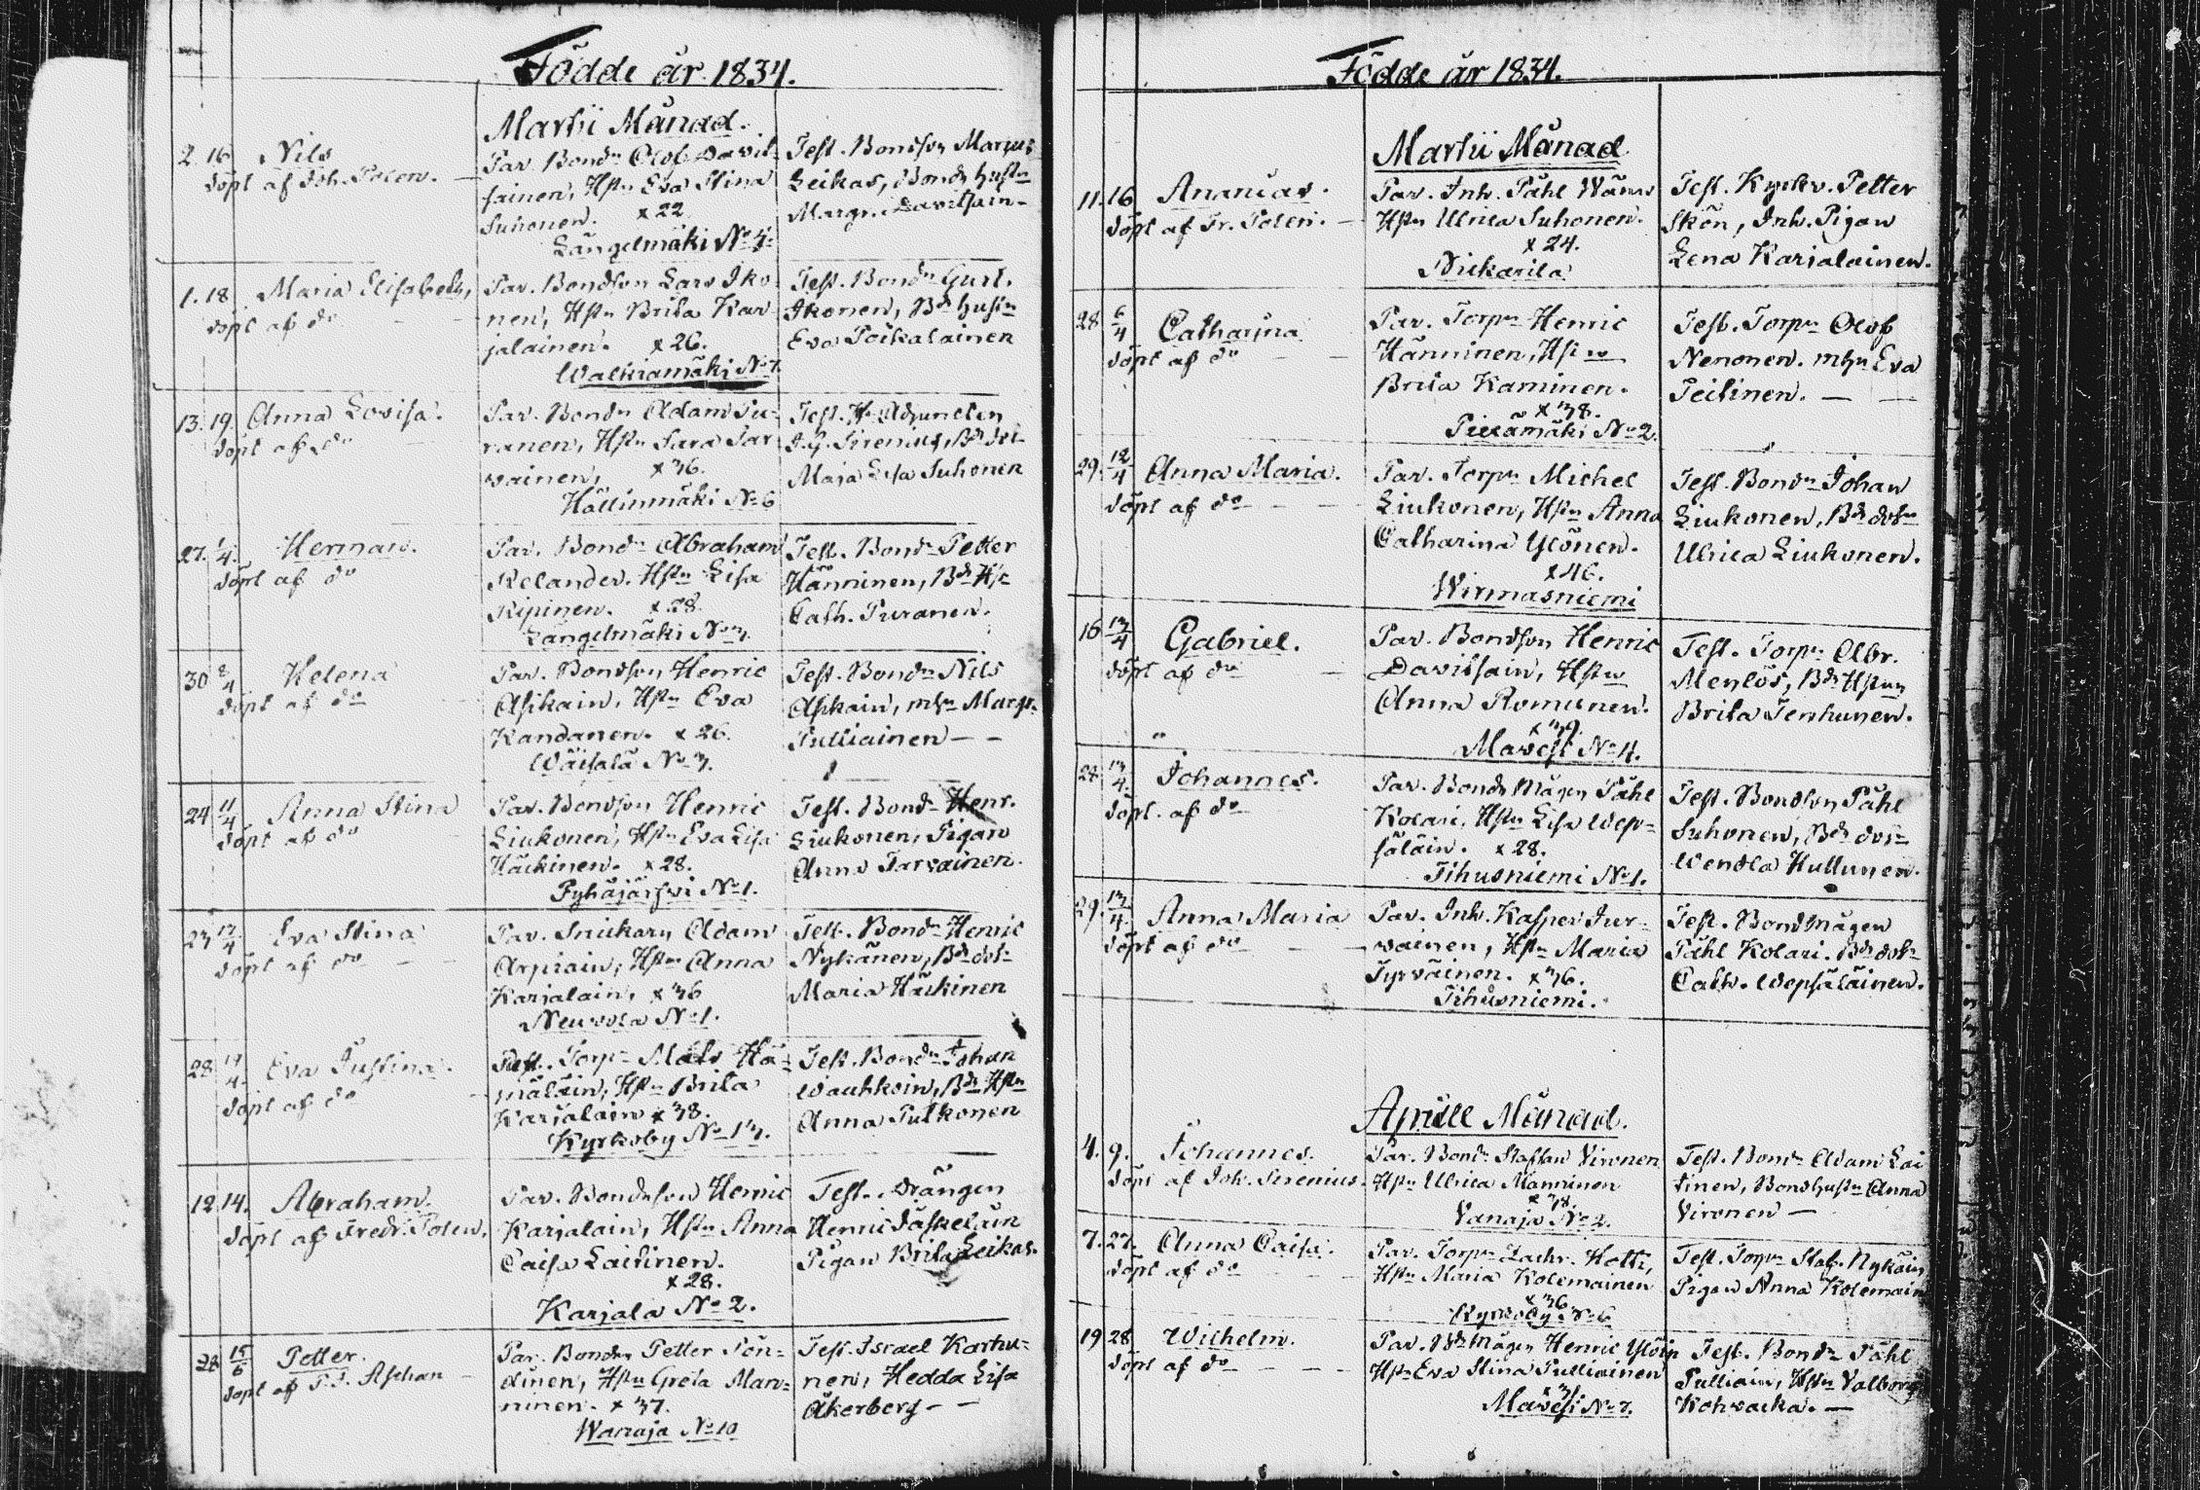 Födde år 1834.
Martii Månad.
2. 16 Nils
döpt af Joh. Polen.
Par. Bondn Olof Davit-
sainen, Hstn Eva Stina
Suhonen. x 22
Längelmäki No 4.
Test. Bondson Marcus
Leikas, Bonds hustn
Margr. Davitsain-
1. 18 Maria Elisabeth,
döpt af do
Par. Bondson Lars Iko-
nen, Hstn Brita Kar-
jalainen. x 26.
Walkiamäki No 7.
Test. Bondn Gust.
Ikonen, Bds hustn
Eva Poikalainen
13. 19. Anna Lovisa.
döpt af do
Par. Bondn Adam Pu-
ranen, Hstn Sara Tar
vainen, x 36.
Hällinmäki No 6
Test. Hr Adjuncten
J.G. Sirenius, Bds dot-
Maja Lisa Suhonen
27. 1/4. Herman.
döpt af do
Par. Bondn Abraham
Relander. Hstn Lisa
Ripinen. x 28.
Längelmäki No 3.
Test. Bondn Petter
Hänninen, Bds Hst
Cath. Puranen.
30 8/4 Helena
döpt af do
Par. Bondson Henric
Asikain, Hstn Eva
Kandanen. x 26.
Wäisälä No 3.
Test. Bondn Nils
Asikain, mhn Margr.
Pulliainen
24 11/4 Anna Stina
döpt af do
Par. Bondson Henric
Liukonen, Hstn Eva Lisa
Häckinen. x 28.
Pyhäjärfwi No 1.
Test. Bondn Henr.
Liukonen, Pigan
Anna Tarvainen.
23 12/4 Eva Stina
döpt af do
Par. Snickarn Adam
Arpiain, Hstn Anna
Karjalain, x 36
Neuvola No 1.
Test. Bondn Henric
Nykänen, Bds dotr
Maria Häckinen
28. 14/4. Eva Justina.
döpt af do
Test. Torpn Mats Hä-
mäläin, Hstn Brita
Karjalain x 38.
Kyrkoby No 13.
Test. Bondn Johan
Wauhkoin, Bds Hstn
Anna Pulkonen
12 14. Abraham.
döpt af Fredr. Polen,
Par. Bondeson Henric
Karjalain, Hstn Anna
Caisa Laitinen.
x 28.
Karjala No 2.
Test. Drängen
Henric Jäskeläin
Pigan Brita Leikas.
28 15/6 Petter.
döpt af P.J. Aschan
Par. Bonden Petter Pön-
dinen, Hstn Greta Man-
ninen. x 37.
Wanaja No 10
Test. Israel Karhu-
nen, Hedda Lisa
Åkerberg
Födde år 1834.
Martii Månad
11. 16 Ananias.
döpt af Fr. Polen.
Par. Inh. Påhl Wänn
Hstn Ulrica Suhonen.
x 24.
Nickarila
Test. Kyrkv. Petter
Skön, Inh. Pigan
Lena Karjalainen.
28 6/4 Catharina
döpt af do
Par. Torpn Henric
Hänninen, Hstn
Brita Kaminen.
x 38.
Piexämäki No 2.
Test. Torpn Olof
Nenonen. mhn Eva
Teitinen.
29. 12/4 Anna Maria.
döpt af do
Par. Torpn Michel
Liukonen, Hstn Anna
Catharina Ylönen.
x 46.
Wirmasniemi
Test. Bondn Johan
Liukonen, Bds dotn
Ulrica Liukonen.
16 13/4 Gabriel.
döpt af do
Par. Bondson Henric
Davitsain, Hstn
Anna Romunen.
Mavesi No 4.
Test. Torpn Abr.
Menlös, Bds Hstrun
Brita Tenhunen.
28. 13/4. Johannes.
döpt. af do
Par. Bonds Mågen Påhl
Kolari, Hstn Lisa Wep-
säläin. x 28.
Tihusniemi No 1.
Test. Bondson Påhl
Suhonen, Bds dotr
Wendla Hullunen.
29. 13/4. Anna Maria
döpt af do
Par. Inh. Kasper Jur-
vainen, Hstn Maria
Tyrväinen. x 36.
Tihusniemi.
Test. Bondmågen
Påhl Kolari. Bds dotr
Cath. Wepsäläinen.
Aprill Månad.
4. 9. Johannes.
döpt af Joh. Sirenius.
Par. Bondn Staffan Vironen
Hstn Ulrica Manninen
x 38.
Vanaja No 2.
Test. Bondn Adam Lai
tinen, Bondhustn Anna
Vironen
7. 27. Anna Caisa.
döpt af do
Par. Torpn Zachr. Hotti,
Hstn Maria Kolemainen
x 36
Kyrkoby No 6
Test. Torpn Staf. Nykäin
Pigan Anna Kolemain
19 28 Wilhelm.
döpt af do
Par. Bds Mågen Henric Ylöin
Hstn Eva Stina Pulliainen
Mavesi No 7.
Test. Bondn Påhl
Pulliain, Hstn Valborg
Kohvacka.